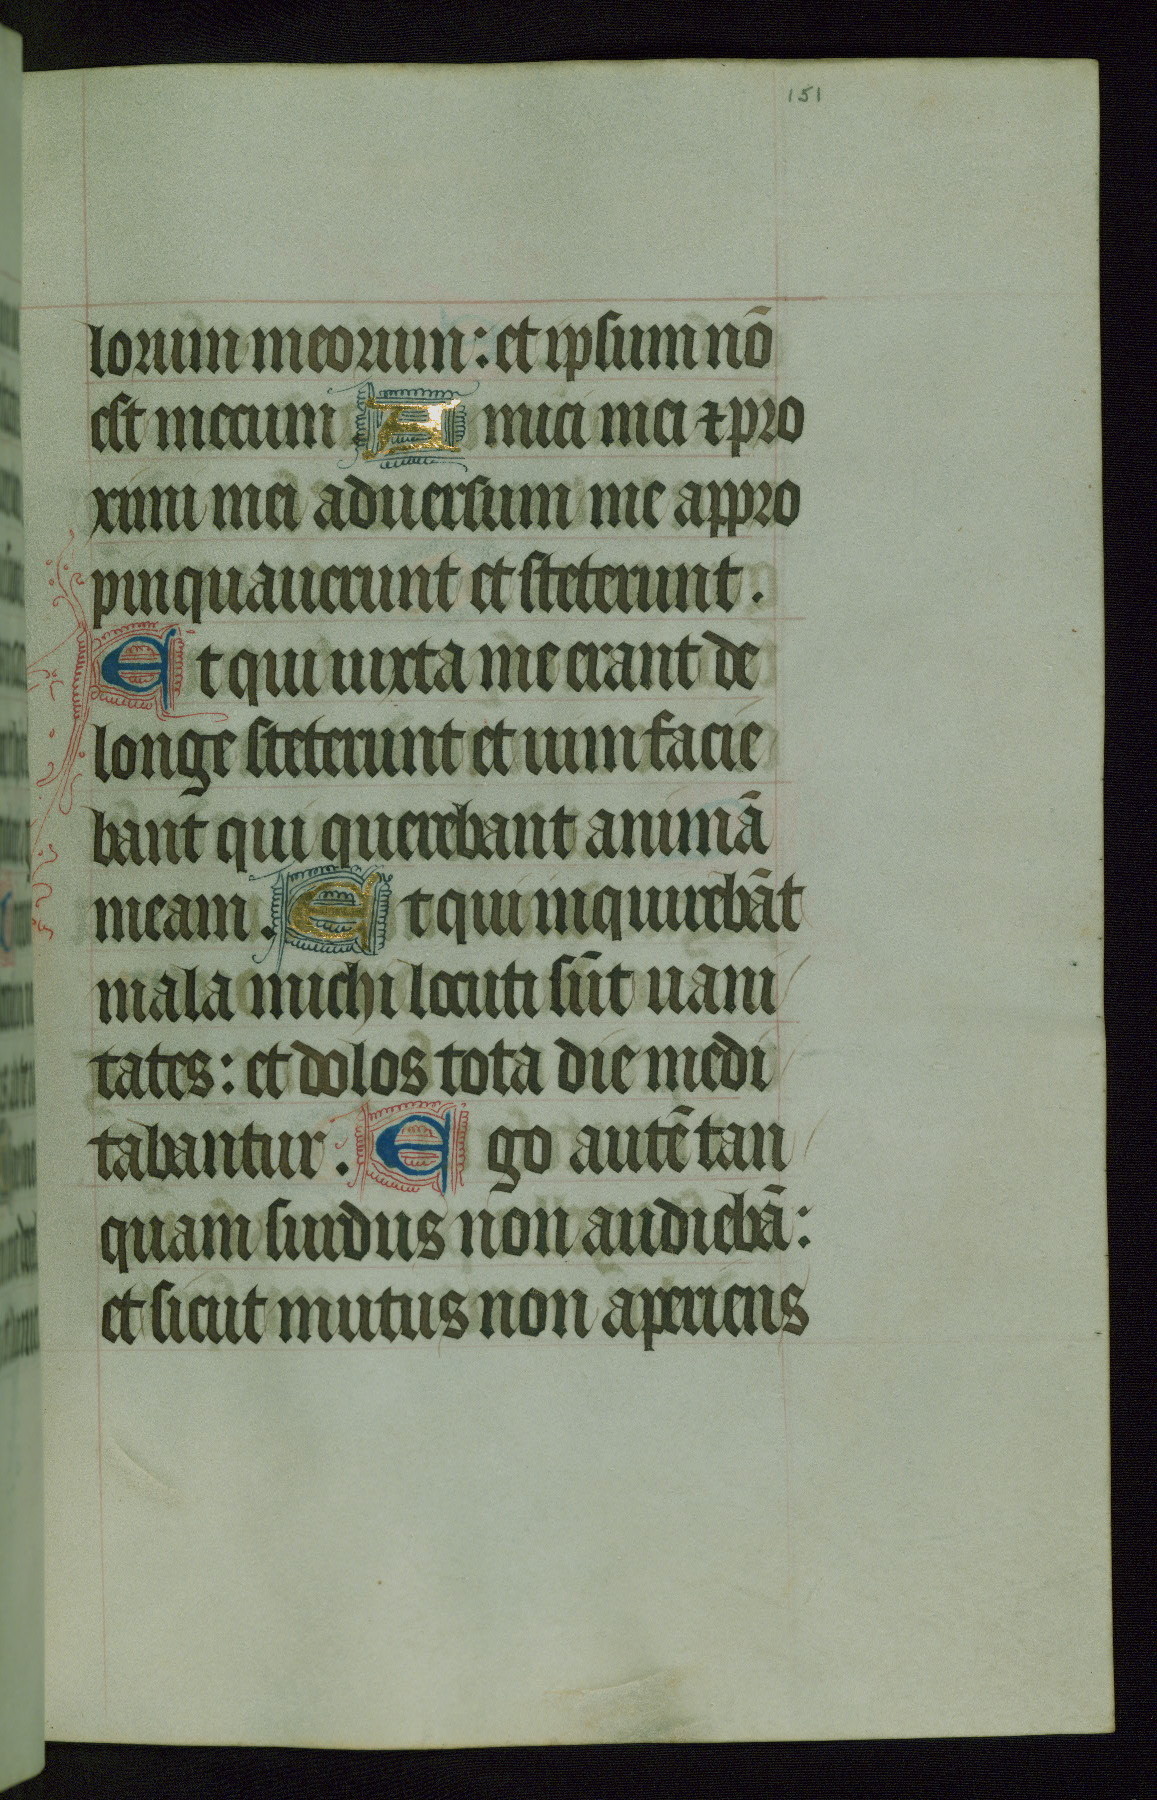 151
lorum meorum: et ipsum nō
est mecum. Amici mei ⁊ pro
ximi mei aduersum me appro
pinquauerunt et steterunt.
Et qui iuxta me erant de
longe steterunt et uim facie
bant qui querebant animā
meam. Et qui inquirebāt
mala michi locuti sūt uani
tates: et dolos tota die medi
tabantur. Ego autē tan
quam surdus non audiebā:
et sicut mutus non aperiens